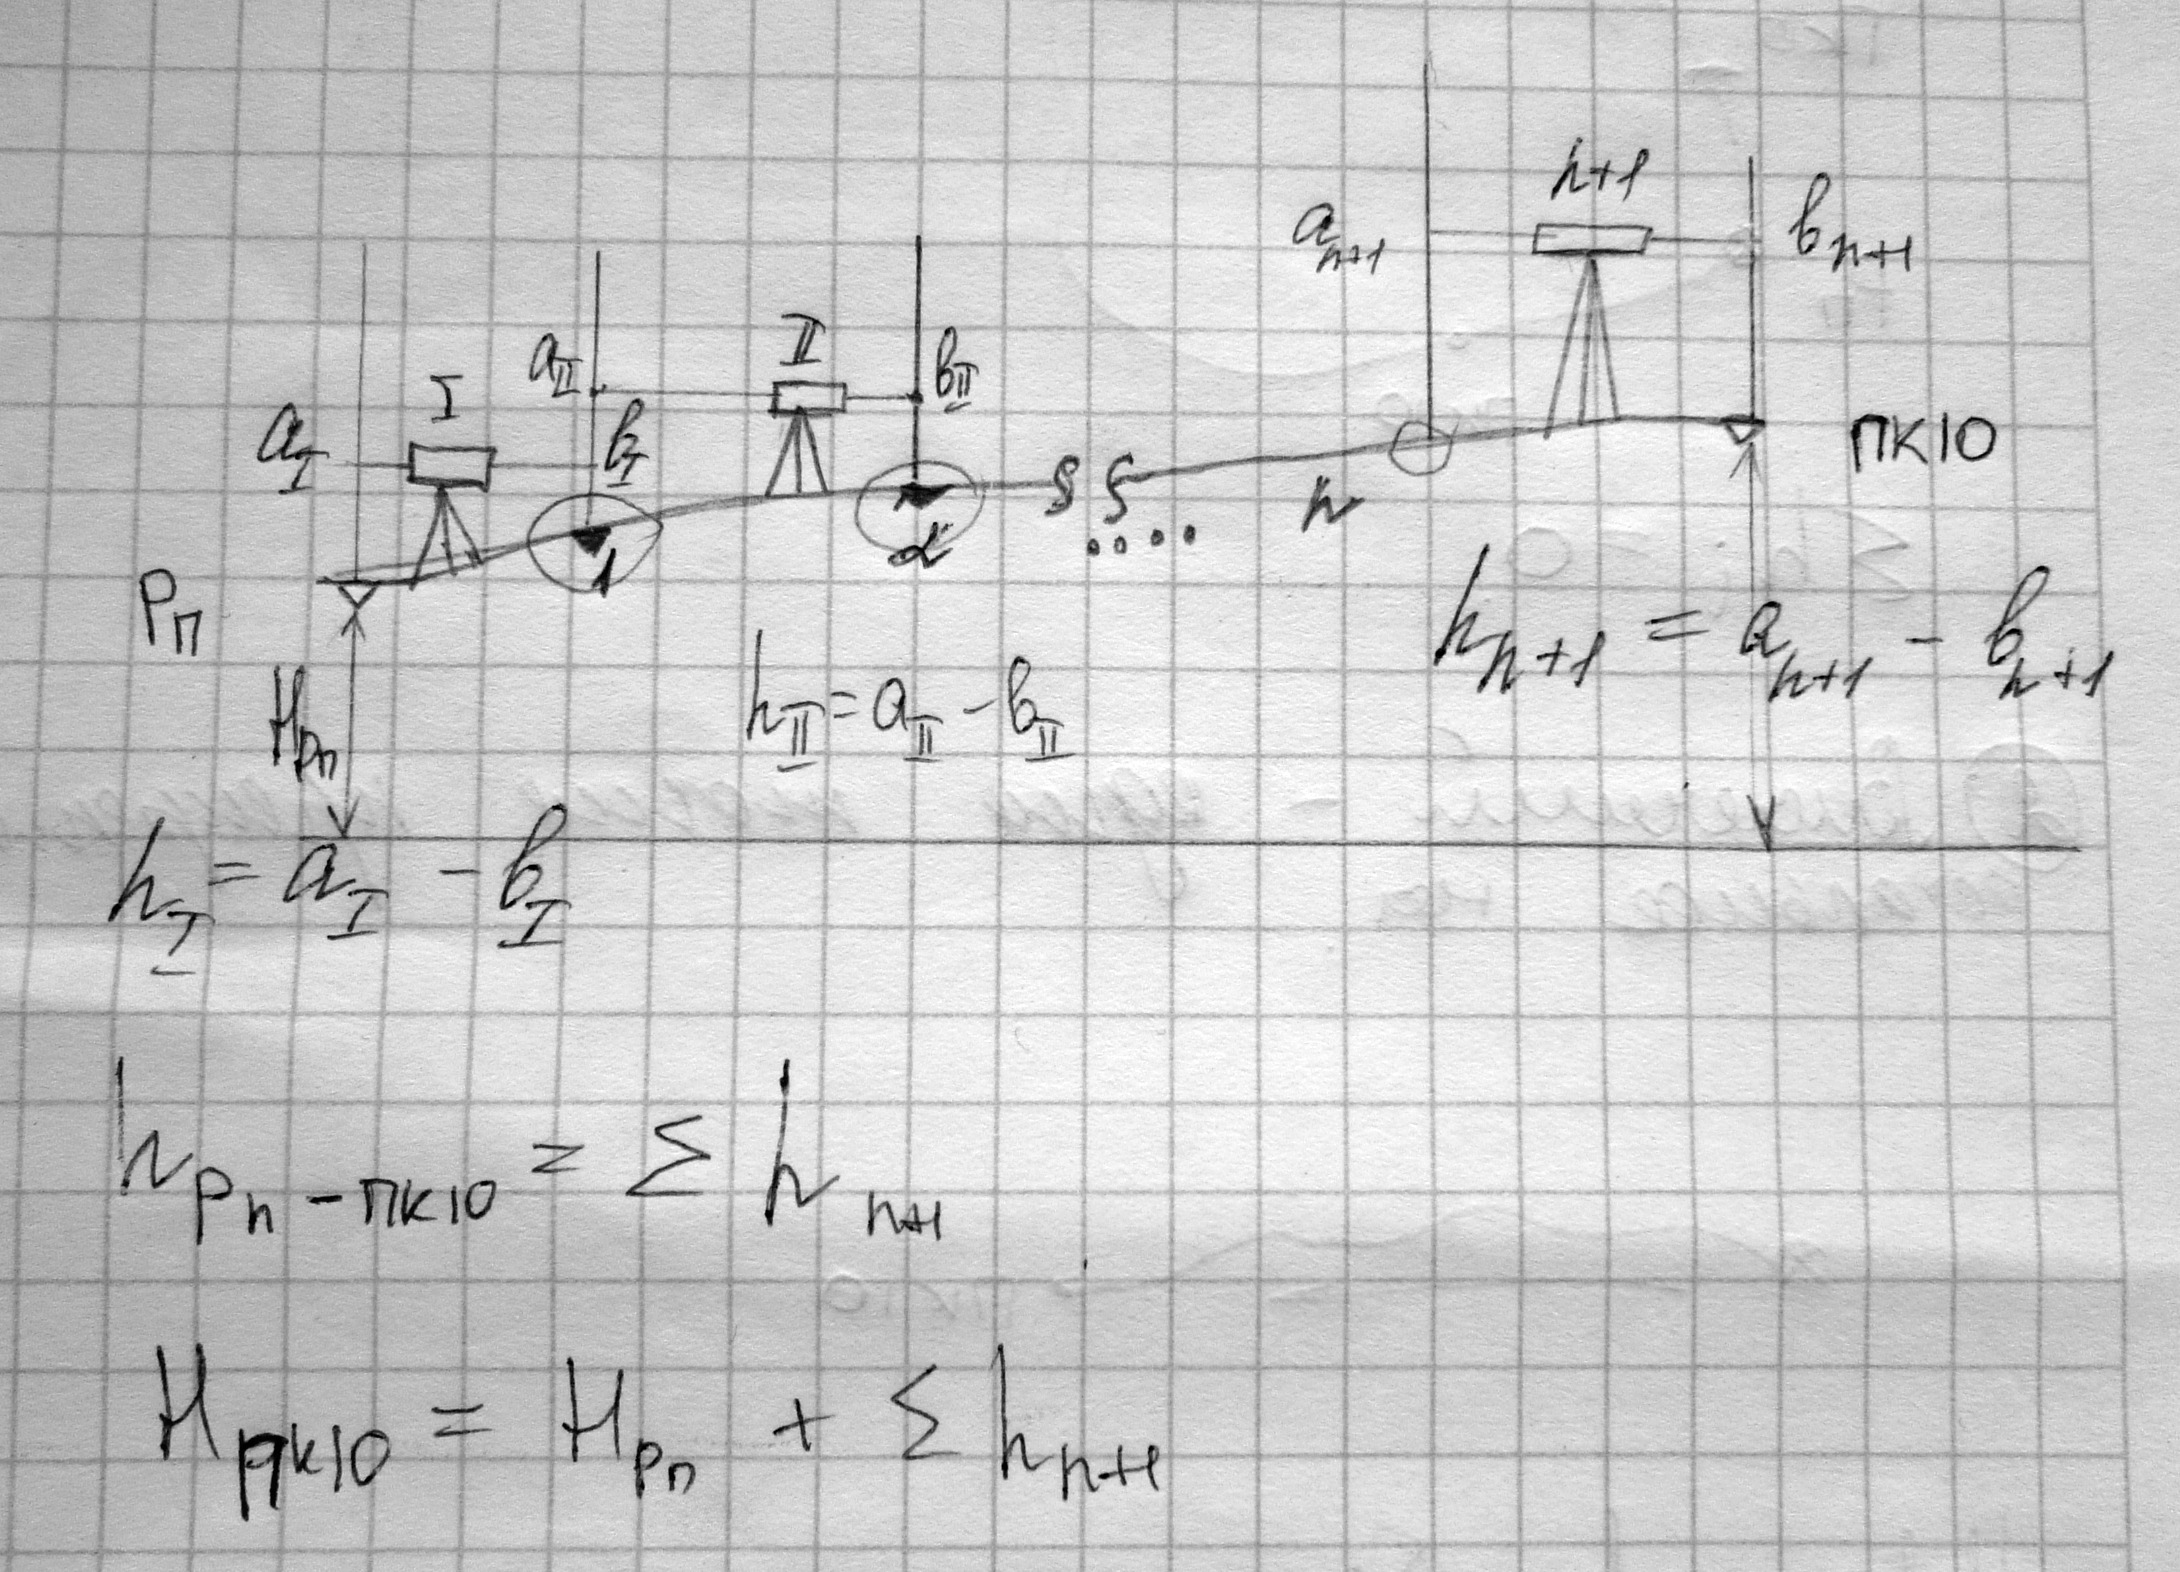 n+1
a n+1
b n+1
II
a II
b II
I
a I
b I
1
2
n
ПК10
Рп
Hрп
h n+1 = a n+1 - b n+1
h II = a II - b II
h I = a I - b I
h Рп - ПК10 = Σ h n+1
H ПК10 = H Рп + Σ h n+1